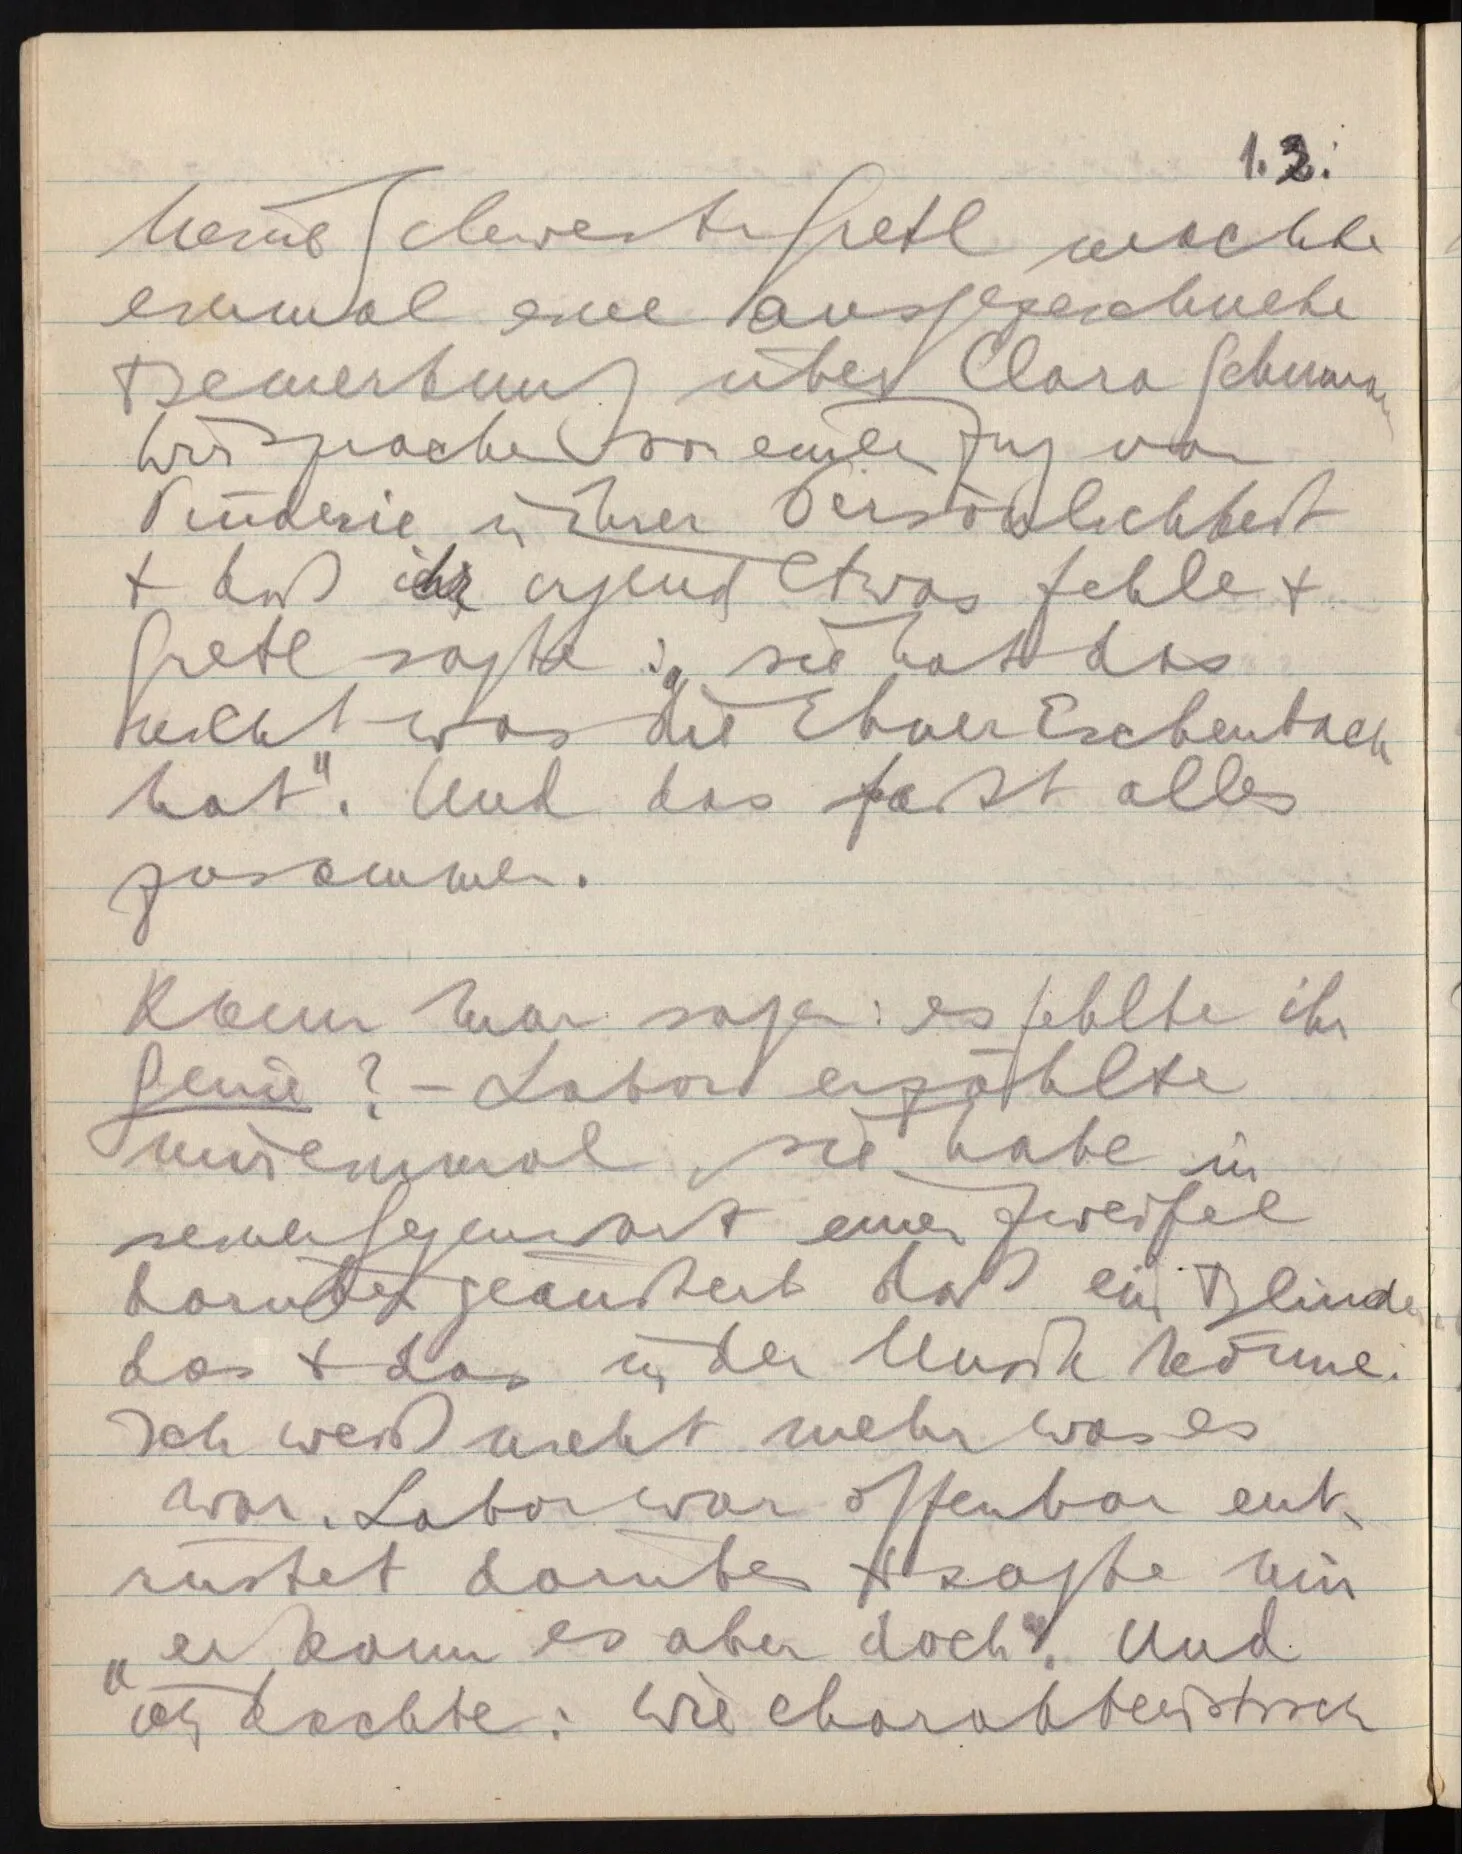 1.3.
Meine Schwester Gretl machte
einmal eine ausgezeichnete
Bemerkung über Clara Schumann
Wir sprachen von einem Zug von
Prüderie in ihrer Persönlichkeit
+ daß ihr irgend etwas fehle +
Gretl sagte: „sie hat das
nicht was die Ebner Eschenbach
hat“. Und das faßt alles
zusammen.
Kann man sagen: es fehlte ihr
Genie? – Labor erzählte
mir einmal, sie habe in
seiner Gegenwart einen Zweifel
darüber geäußert daß ein Blinder
das + das in der Musik könne.
Ich weiß nicht mehr was es
war. Labor war offenbar ent-
rüstet darüber + sagte mir
„er kann es aber doch“. Und
ich dachte: wie charakteristisch